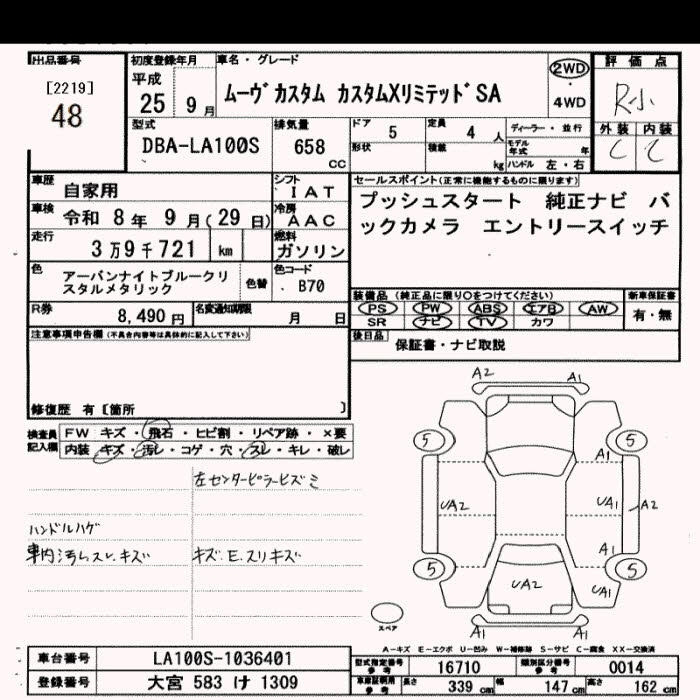 出品番号
[2219]
48
初度登録年月
平成
25 9月
車名・グレード
ムーヴカスタム カスタムXリミテッドSA
2WD
・
4WD
評価点
R小
外装 内装
C C
型式
DBA-LA100S
排気量
658
CC
ドア 5
形状
定員 4 人
積載 kg
ディーラー・並行
モデル年式 年
ハンドル 左・右
車歴 自家用
車検 令和 8年 9月(29日)
走行 3万9千721 km
シフト IAT
冷房 AAC
燃料 ガソリン
セールスポイント(正常に機能するものに限ります)
プッシュスタート 純正ナビ バ
ックカメラ エントリースイッチ
色 アーバンナイトブルークリ
スタルメタリック
色替
色コード
B70
装備品(純正品に限り○をつけてください)
PS PW ABS エアB AW
SR ナビ TV カワ
新車保証書
有・無
R券 8,490 円
名変通知期限 月 日
後日品 保証書・ナビ取説
注意事項申告欄(不具合内容等は具体的に記入して下さい)
修復歴 有〔箇所 〕
検査員記入欄
FW キズ・飛石・ヒビ割・リペア跡・×要
内装 キズ・汚レ・コゲ・穴・スレ・キレ・破レ
左センターピラーヒズミ
ハンドルハゲ
車内汚レスレ、キズ
キズ.E.スリキズ
A2 A1
5 5
A1
UA2 UA1 A2
A1
5 5
UA2 UA1
A1
スペア
A-キズ E-エクボ U-凹み W-補修跡 S-サビ C-腐食 XX-交換済
車台番号 LA100S-1036401
登録番号 大宮 583 け 1309
型式指定番号 参考 16710
類別区分番号 参考 0014
車庫証明用 参考 長さ 339 cm 幅 147 cm 高さ 162 cm